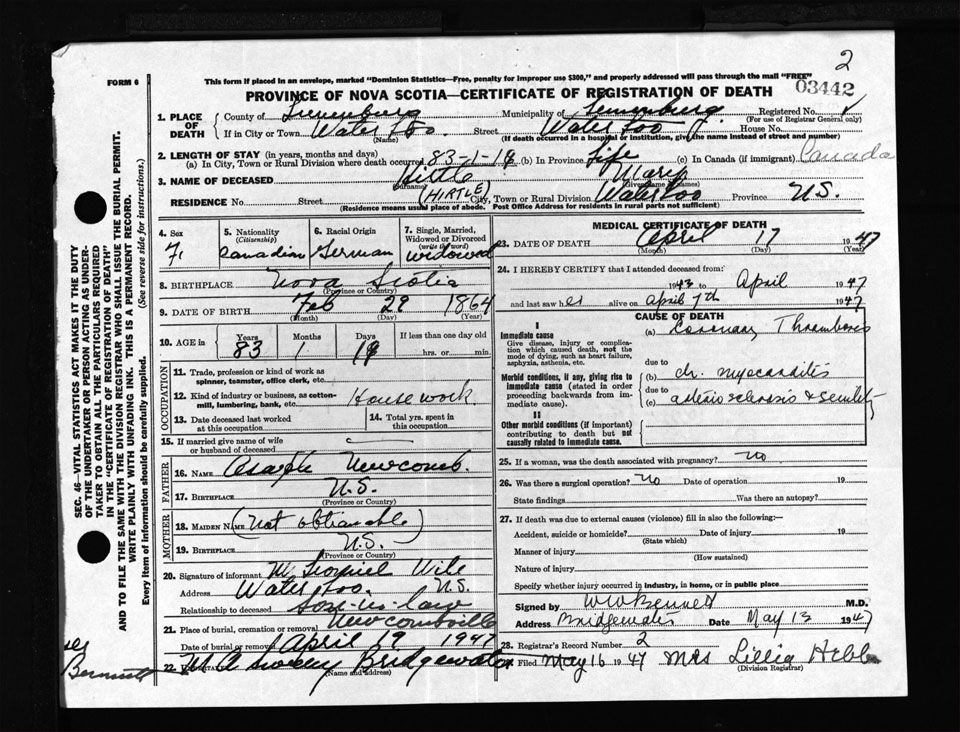 2
FORM 6
This form if placed in an envelope, marked "Dominion Statistics—Free, penalty for improper use $300," and properly addressed will pass through the mail "FREE"
03442
PROVINCE OF NOVA SCOTIA—CERTIFICATE OF REGISTRATION OF DEATH
1. PLACE OF DEATH County of Lunenburg Municipality of Lunenburg Registered No.
(For use of Registrar General only)
If in City or Town Waterloo Street Waterloo House No.
(Name) (If death occurred in a hospital or institution, give the name instead of street and number)
2. LENGTH OF STAY (in years, months and days)
(a) In City, Town or Rural Division where death occurred 83-1-19 (b) In Province Life (c) In Canada (if immigrant) Canada
3. NAME OF DECEASED Hirtle Mary
(Surname) (Given name or names)
(HIRTLE)
RESIDENCE No. Street City, Town or Rural Division Waterloo Province N.S.
(Residence means usual place of abode. Post Office Address for residents in rural parts not sufficient)
4. Sex 5. Nationality (Citizenship) 6. Racial Origin 7. Single, Married, Widowed or Divorced (write the word)
F Canadian German widowed
8. BIRTHPLACE Nova Scotia
(Province or Country)
9. DATE OF BIRTH Feb 29 1864
(Month) (Day) (Year)
10. AGE in Years Months Days If less than one day old
83 1 19 hrs. or min.
OCCUPATION
11. Trade, profession or kind of work as spinner, teamster, office clerk, etc.
12. Kind of industry or business, as cotton-mill, lumbering, bank, etc. Housework
13. Date deceased last worked at this occupation
14. Total yrs. spent in this occupation
15. If married give name of wife or husband of deceased
FATHER
16. NAME Newcomb.
17. BIRTHPLACE N.S.
(Province or Country)
MOTHER
18. MAIDEN NAME (Not obtainable)
19. BIRTHPLACE N.S.
(Province or Country)
20. Signature of informant M Wile
Address Waterloo. N.S.
Relationship to deceased son-in-law
21. Place of burial, cremation or removal Newcombville
Date of burial or removal April 19 1947
22. Bridgewater
(Name and address)
MEDICAL CERTIFICATE OF DEATH
23. DATE OF DEATH April 17 1947
(Month) (Day) (Year)
24. I HEREBY CERTIFY that I attended deceased from:
1943 to April 1947
and last saw her alive on April 7th 1947
CAUSE OF DEATH
I
Immediate cause
Give disease, injury or complication which caused death, not the mode of dying, such as heart failure, asphyxia, asthenia, etc.
(a) Coronary Thrombosis
due to
Morbid conditions, if any, giving rise to immediate cause (stated in order proceeding backwards from immediate cause).
(b) chr. myocarditis
due to
(c) arterio sclerosis & senility
II
Other morbid conditions (if important) contributing to death but not causally related to immediate cause.
25. If a woman, was the death associated with pregnancy? no
26. Was there a surgical operation? no Date of operation 19
State findings Was there an autopsy?
27. If death was due to external causes (violence) fill in also the following:—
Accident, suicide or homicide? Date of injury 19
(State which)
Manner of injury
(How sustained)
Nature of injury
Specify whether injury occurred in industry, in home, or in public place
Signed by W W Bennett M.D.
Address Bridgewater Date May 13 1947
28. Registrar's Record Number 2
Filed May 16 1947 Mrs Hebb
(Division Registrar)
SEC. 46—VITAL STATISTICS ACT MAKES IT THE DUTY OF THE UNDERTAKER OR PERSON ACTING AS UNDERTAKER TO OBTAIN ALL THE PARTICULARS REQUIRED IN THE "CERTIFICATE OF REGISTRATION OF DEATH" AND TO FILE THE SAME WITH THE DIVISION REGISTRAR WHO SHALL ISSUE THE BURIAL PERMIT.
WRITE PLAINLY WITH UNFADING INK. THIS IS A PERMANENT RECORD.
Every item of information should be carefully supplied. (See reverse side for instructions.)
Bennett